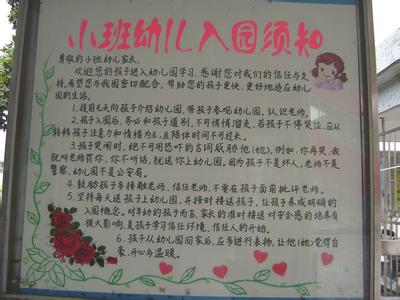 小班幼儿入园须知
尊敬的小班幼儿家长。
欢迎您的孩子进入幼儿园学习，感谢您对我们的信任与支
持。希望您与我园密切配合，帮助您的孩子更快、更好地适应幼儿
园的生活。
1. 提前几天向孩子介绍幼儿园，带孩子参观幼儿园，认识老师。
2. 孩子入园后，务必和孩子道别，不可悄悄溜走，若孩子不停哭泣，应以
转移孩子注意力和情绪为主，且陪伴时间不可过长。
3. 孩子哭闹时，绝不可用恐吓的言词威胁他(她)，例如，你再哭，我
就叫老师罚你，你不听话，就送你上幼儿园。因为孩子不是坏人，老师不是
警察，幼儿园不是公安局。
4. 鼓励孩子多接触老师，信任老师，不要在孩子面前批评老师。
5. 坚持每天送孩子上幼儿园，并按时接送孩子，让孩子养成明确的
入园概念。对年幼的孩子而言，家长的准时接送对安全感的培养有
很大影响，是孩子学习信任环境，信任人的开始。
6. 孩子从幼儿园回家后，应多进行表扬，让他(她)觉得自
豪、开心与温暖。